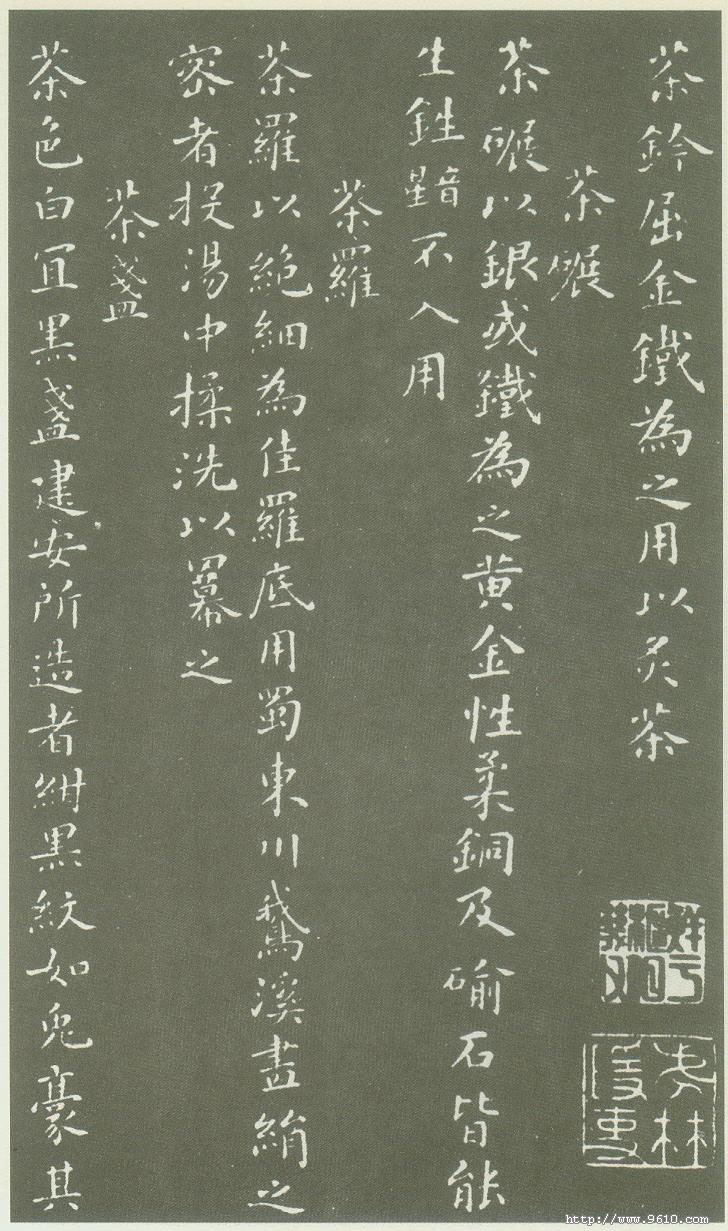 茶鈐屈金鐵為之用以炙茶
茶碾
茶碾以銀或鐵為之黄金性柔銅及碖石皆能
生鉎不入用
茶羅
茶羅以絶細為佳羅底用蜀東川鵞溪畫絹之
密者投湯中揉洗以羃之
茶盞
茶色白宜黒盞建安所造者紺黒紋如兔豪其
http://www.9610.com